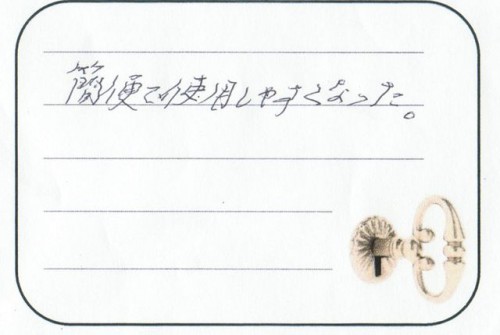 簡便で使用しやすくなった。